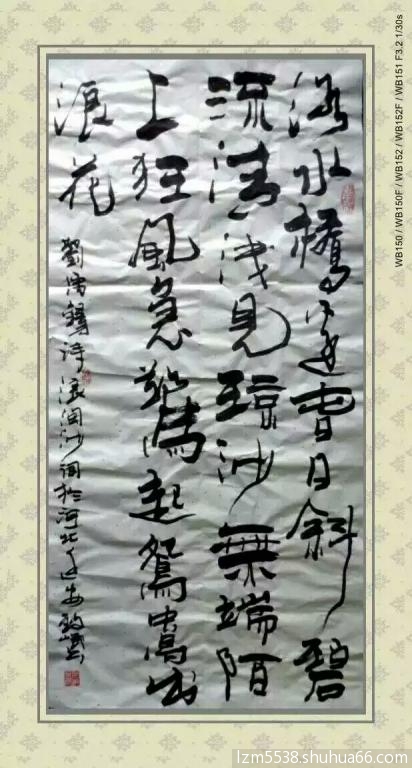 洛水橋邊春日斜碧
流清浅見琼沙無端陌
上狂風急驚起鴛鴦出
浪花
劉禹錫詩浪淘沙詞於河北迁安
WB150 / WB150F / WB152 / WB152F / WB151 F3.2 1/30s
lzm5538.shuhua66.com